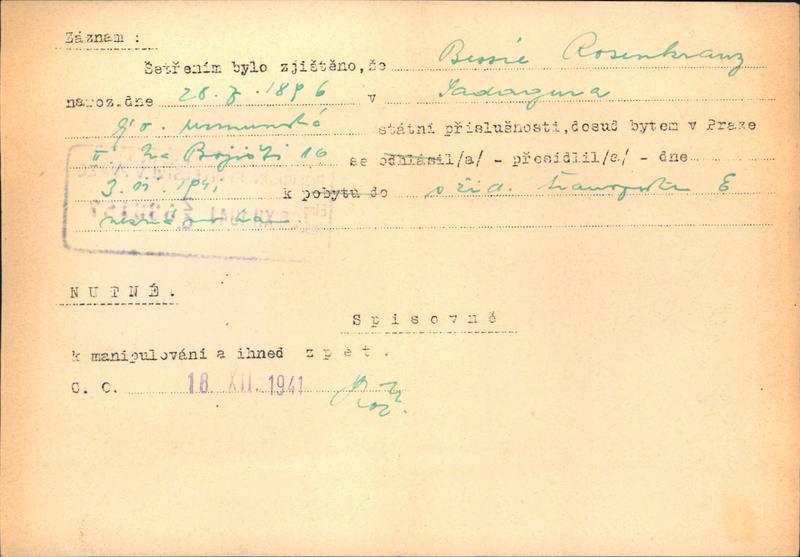 Záznam :
Šetřením bylo zjištěno, že Bessie Rosenkranz
naroz.dne 28.7.1896 v Sadagura
státní příslušnosti, dosud bytem v Praze
II., Na Bojišti 16 se odhlásil/a/ - přesídlil/a/ - dne
3. 11. 1941 k pobytu do s žid. transportem E
neznámo kam.
NUTNÉ.
Spisovně
k manipulování a ihned zpět.
C. O. 18. XII. 1941